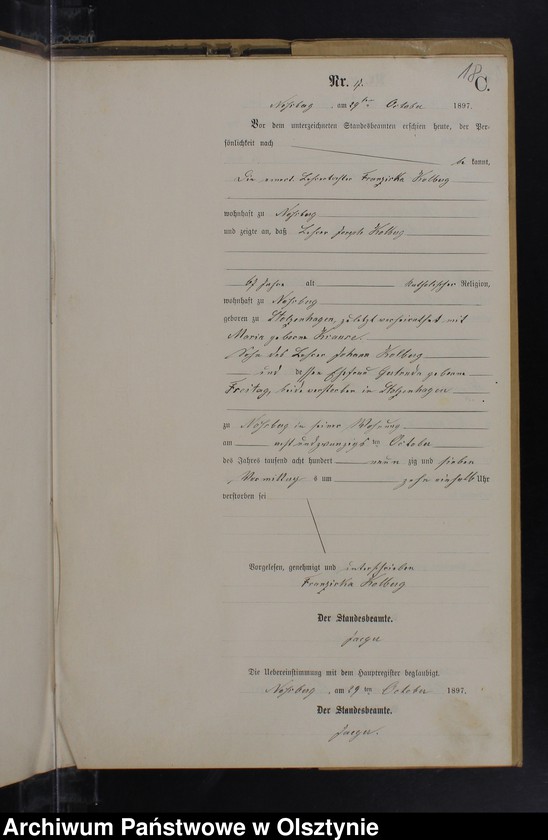 18
C.
Nr. 9.
Noßberg, am 29ten October 1897.
Vor dem unterzeichneten Standesbeamten erschien heute, der Per-
sönlichkeit nach
be kannt,
Die unverh. Lehrertochter Franziska Kolberg
wohnhaft zu Noßberg
und zeigte an, daß Lehrer Joseph Kolberg
Jahre alt katholischer Religion,
wohnhaft zu Noßberg
geboren zu Stolzenhagen, zuletzt verheirathet mit
Maria geborene
Sohn des Lehrer Johann Kolberg
und dessen Ehefrau Gertruda geborene
Freitag, beide verstorben in Stolzenhagen
zu Noßberg in seiner Wohnung
am achtundzwanzigsten October
des Jahres tausend acht hundert neun zig und sieben
Vormittags um zehn einhalb Uhr
verstorben sei
Vorgelesen, genehmigt und unterschrieben
Franziska Kolberg
Der Standesbeamte.
Jaeger
Die Uebereinstimmung mit dem Hauptregister beglaubigt.
Noßberg, am 29ten October 1897.
Der Standesbeamte.
Jaeger.
Archiwum Państwowe w Olsztynie